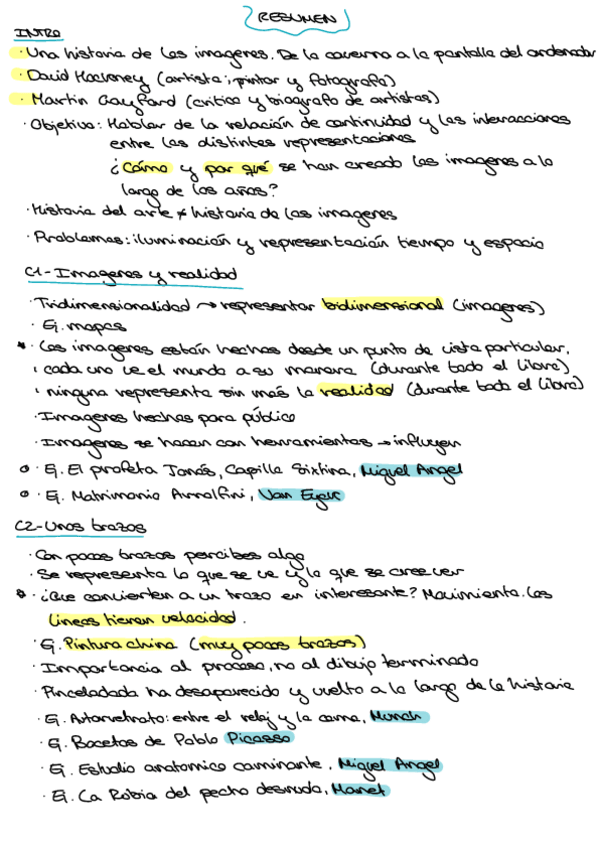 RESUMEN
INTRO
· Una historia de las imagenes. De la caverna a la pantalla del ordenador
· David Hockney (artista; pintor y fotografo)
· Martin Gayford (critico y biografo de artistas)
· Objetivo: Hablar de la relación de continuidad y las interacciones
entre las distintas representaciones
¿Cómo y por qué se han creado las imagenes a lo
largo de los años?
· Historia del arte ≠ historia de las imagenes
· Problemas: iluminación y representación tiempo y espacio
C1- Imagenes y realidad
· Tridimensionalidad → representar bidimensional (imagenes)
· Ej. mapas
* · Las imagenes están hechas desde un punto de vista particular,
· cada uno ve el mundo a su manera (durante todo el libro)
· ninguna representa sin más la realidad (durante todo el libro)
· Imagenes hechas para público
· Imagenes se hacen con herramientas → influyen
o · Ej. El profeta Jonás, Capilla Sixtina, Miguel Angel
o · Ej. Matrimonio Arnolfini, Van Eyck
C2- Unos trazos
· Con pocos trazos percibes algo
· Se representa lo que se ve y lo que se cree ver
* · ¿Que convierten a un trazo en interesante? Movimiento. Las
líneas tienen velocidad.
· Ej. Pintura china (muy pocos trazos)
· Importancia al proceso, no al dibujo terminado
· Pincelada ha desaparecido y vuelto a lo largo de la historia
· Ej. Autorretrato: entre el reloj y la cama, Munch
· Ej. Bocetos de Pablo Picasso
· Ej. Estudio anatomico caminante, Miguel Angel
· Ej. La Rubia del pecho desnudo, Manet